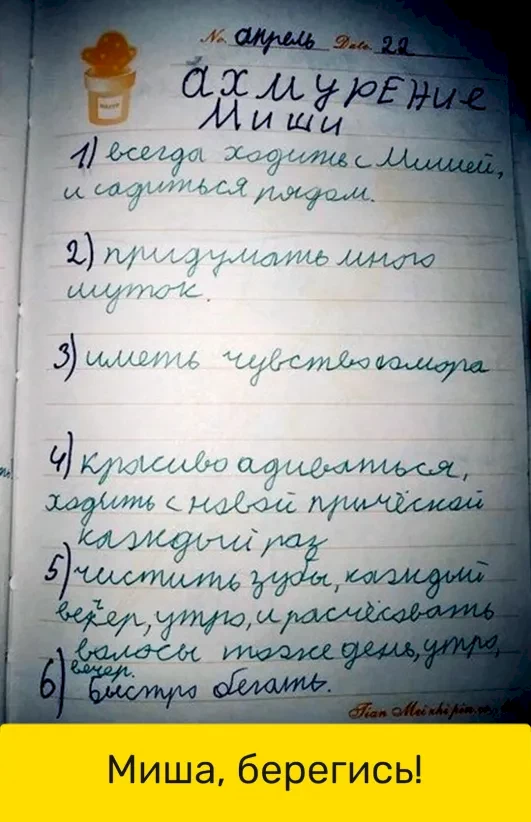 No. апрель Date. 22
ахмурение
Миши
1) всегда ходить с Мишей,
и садиться рядом.
2) придумать много
шуток.
3) иметь чувство юмора
4) красиво адиваться,
ходить с новой причёской
каждый раз
5) чистить зубы, каждый
вечер, утро, и расчёсовать
волосы тоже день, утро,
вечер.
6) Быстро бегать.
Миша, берегись!